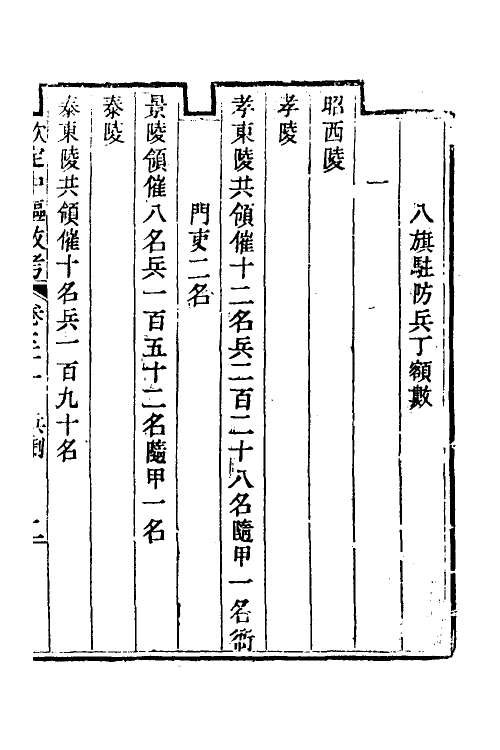 八旗駐防兵丁額數
一
昭西陵
孝陵
孝東陵共領催十二名兵二百二十八名隨甲一名衙
門吏二名
景陵領催八名兵一百五十二名隨甲一名
泰陵
泰東陵共領催十名兵一百九十名
欽定中樞政考 卷三十一 兵制 二